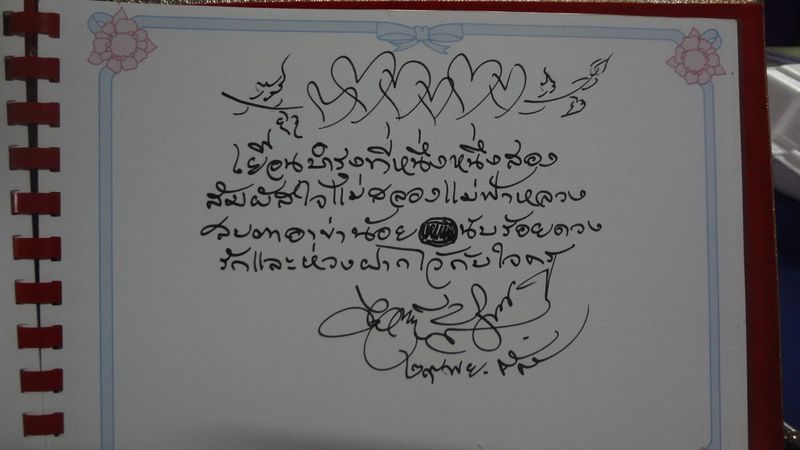 เยือนบำรุงที่หนึ่งหนึ่งสอง
สัมผัสใจแม่สลองแม่ฟ้าหลวง
สบตาอาข่าน้อยนับร้อยดวง
รักและห่วงฝากไว้กับใจครู
๒๙ พย. ๕๕